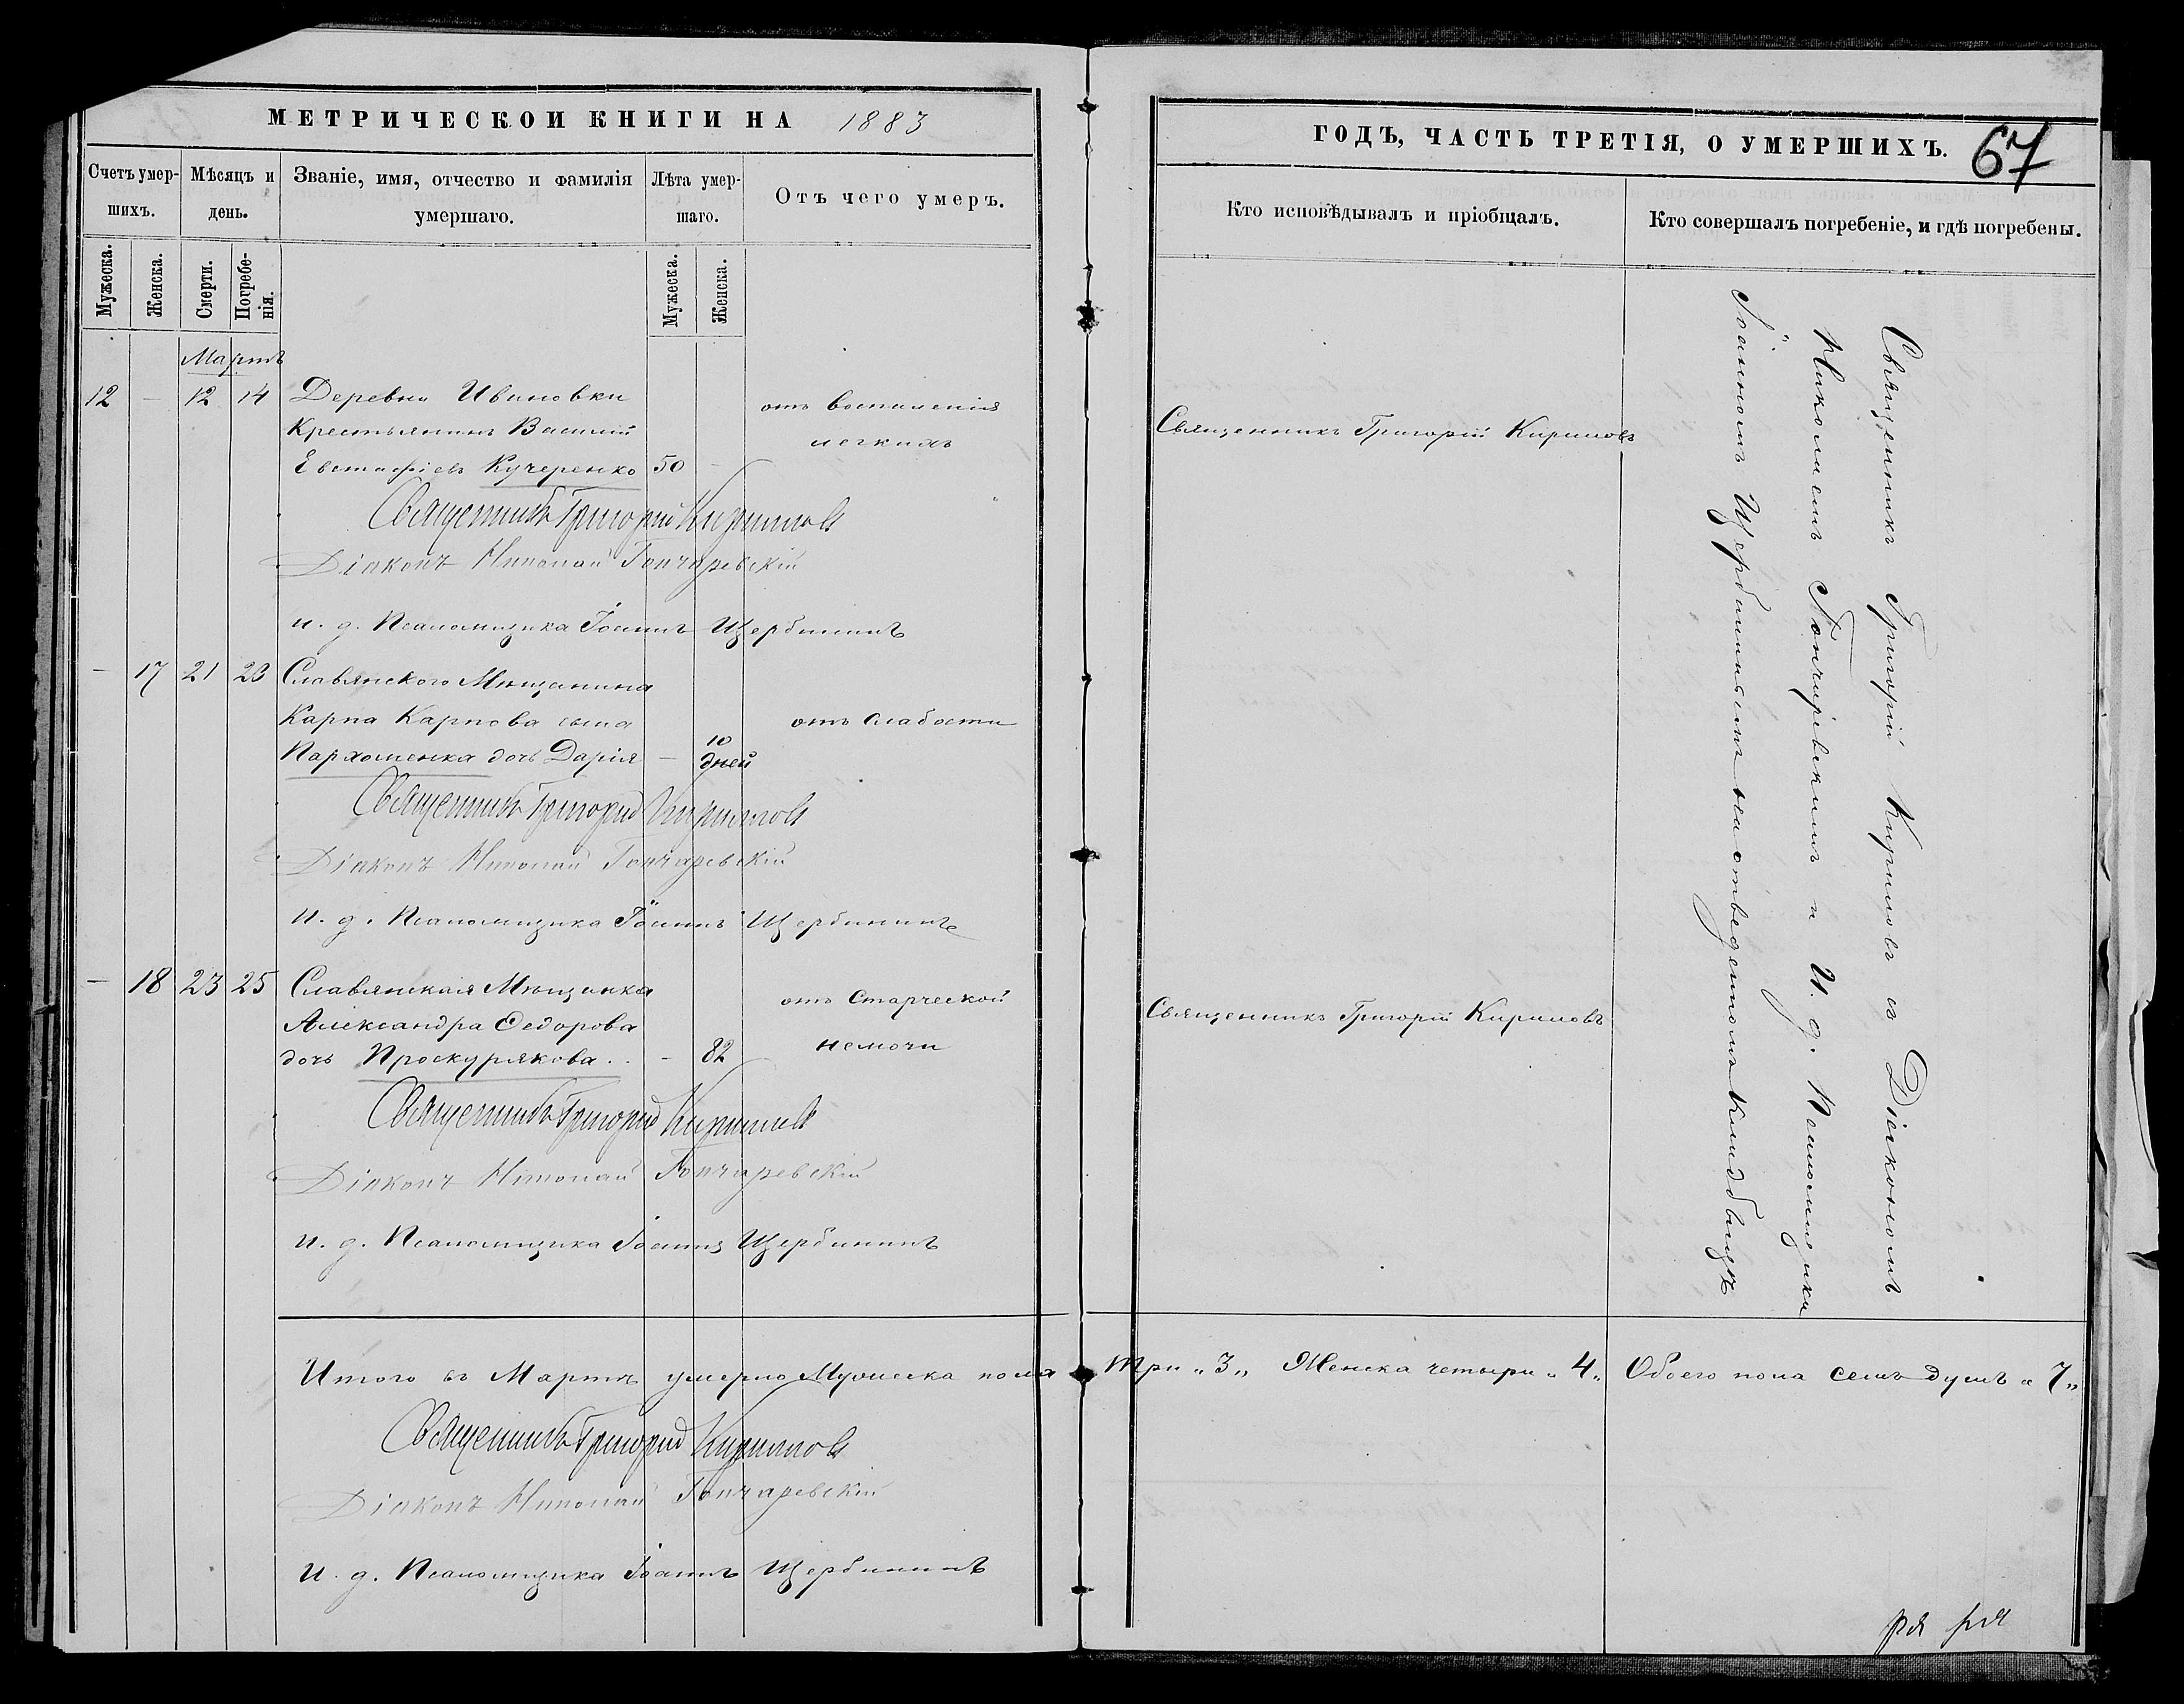 МЕТРИЧЕСКОЙ КНИГИ НА 1883
Счетъ умершихъ.
Мѣсяцъ и день.
Званіе, имя, отчество и фамилія умершаго.
Лѣта умершаго.
Отъ чего умеръ.
Мужеска.
Женска.
Смерти.
Погребенія.
Мужеска.
Женска.
Мартъ
12 — 12 14 Деревни Ивановки
Крестьянинъ Василій
Евстафіевъ Кучеренко 50 —
отъ воспаленія
легкихъ
Священникъ Григорій Кириловъ
Діаконъ Николай Гончаревскій
и. д. Псаломщика Іоаннъ Щербининъ
— 17 21 23 Славянского Мѣщанина
Карпа Карпова сына
Пархоменка дочь Дарія — 10 дней
отъ слабости
Священникъ Григорій Кириловъ
Діаконъ Николай Гончаревскій
И. д. Псаломщика Іоаннъ Щербининъ
— 18 23 25 Славянская Мѣщанка
Александра Ѳедорова
дочь Проскурякова . . — 82
отъ Старческой
немочи
Священникъ Григорій Кириловъ
Діаконъ Николай Гончаревскій
и. д. Псаломщика Іоаннъ Щербининъ
Итого въ Мартѣ умерло Мужеска пола
Священникъ Григорій Кириловъ
Діаконъ Николай Гончаревскій
и. д. Псаломщика Іоаннъ Щербининъ
ГОДЪ, ЧАСТЬ ТРЕТІЯ, О УМЕРШИХЪ. 67
Кто исповѣдывалъ и пріобщалъ.
Кто совершалъ погребеніе, и гдѣ погребены.
Священникъ Григорій Кириловъ
Священникъ Григорій Кириловъ
Священникъ Григорій Кириловъ съ Діакономъ
Николаемъ Гончаревскимъ и И. д. Псаломщика
Іоанномъ Щербининымъ на отведенномъ кладбищѣ
три „3„ Женска четыри „4„ Обоего пола семь душъ „7„